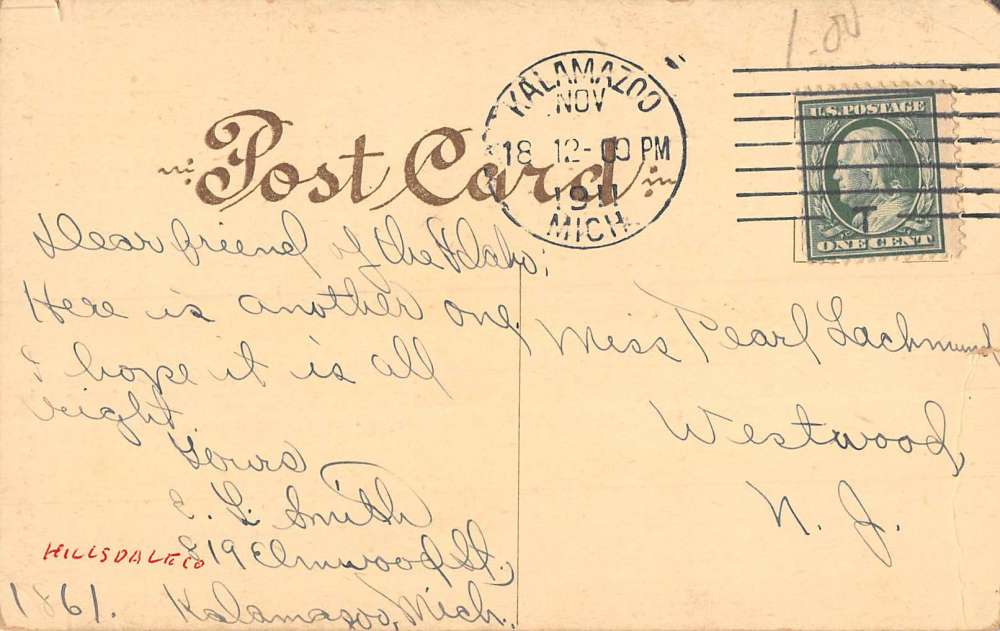 1.00
KALAMAZOO
NOV
18 12-00 PM
1911
MICH.
U.S. POSTAGE
ONE CENT
Post Card
Dear friend of the
Here is another one,
I hope it is all
right.
Yours
E. L. Smith
819 Elmwood St.,
Kalamazoo, Mich.
HILLSDALE CO
1861.
Miss Pearl Lachmund
Westwood,
N. J.